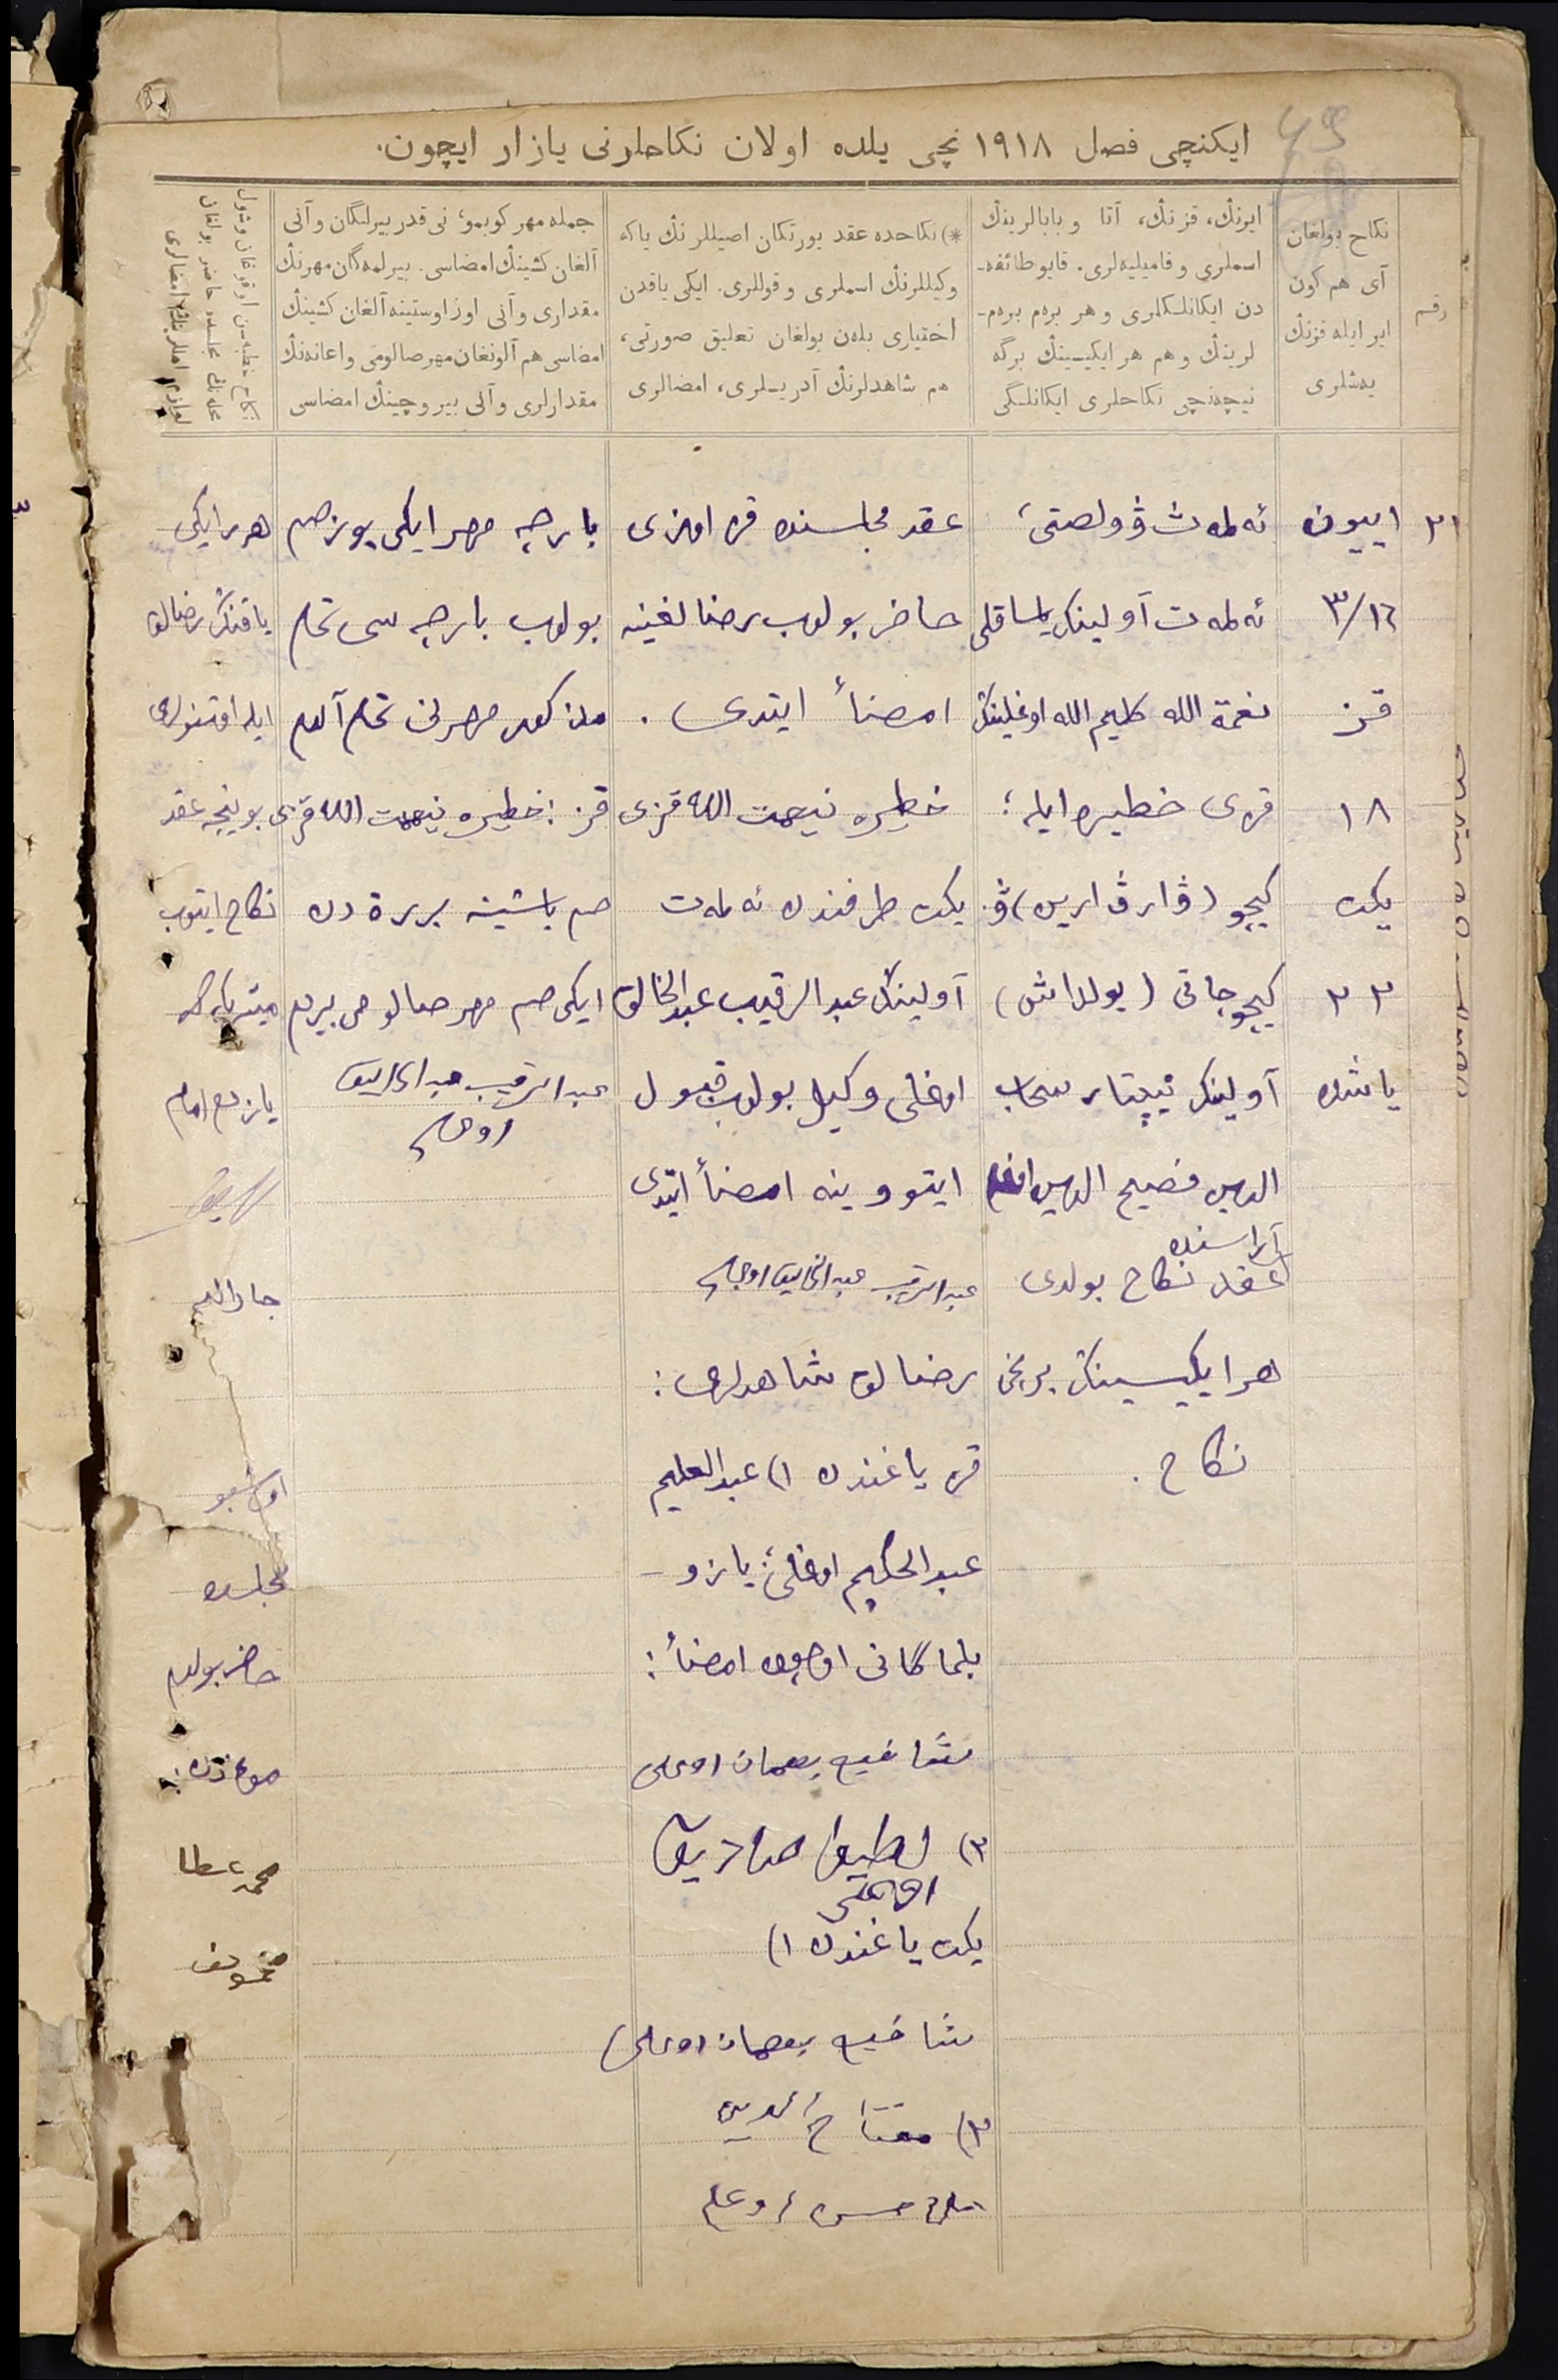 ایكنچی فصل ۱۹۱۸ نچی یلده اولان نكاحلرنی یازار ایچون.
رقم
نكاح بولغان
آی هم كون
ایر ایله قزنڭ
یه‌شلری
ایرنڭ، قزنڭ، آتا و بابالرینڭ
اسملری و فامیلیه‌لری. قایو طائفه-
دن ایكانلكلری و هر برهم برهم-
لرینڭ و هم هر ایكیسینڭ برگه
نیچه‌نچی نكاحلری ایكانلگی
*) نكاحده عقد یورتكان اصیللرنڭ یاكه
وكیللرنڭ اسملری و قوللری. ایكی یاقدن
اختیاری بله‌ن بولغان تعلیق صورتی،
هم شاهدلرنڭ آدریسلری، امضالری
جمله مهر كوبمو، نی قدر بیرلگان و آنی
آلغان كشینڭ امضاسی. بیرلمه‌گان مهرنڭ
مقداری و آنی اوز اوستینه آلغان كشینڭ
امضاسی هم آلونغان مهر صالومی و اعانه‌نڭ
مقدارلری و آنی بیروچینڭ امضاسی
نكاح خطبه‌سن اوقوغان وشول
مجلسده حاضر بولغان
امضالری
۲۱
اییون
۳/۱٦
قز
۱۸
یكت
۲۳
یاشده
ئه‌لمه‌ت ڤولصتی،
ئه‌لمه‌ت آولینڭ یاساقلی
نعمة الله كلیم الله اوغلینڭ
قزی خطیره ایله؛
كیچو (ڤارڤارین) ڤ.
كیچوجاتی (یولداش)
آولینڭ تیپتار شهاب
الدین فصیح الدین اوغلی
آراسنده
عقد نكاح بولدی
هر ایكیسینڭ برنچی
نكاح.
عقد مجلسنده قز اوزی
حاضر بولوب رضالغینه
امضأ ایتدی.
خطیره نیعمت الله قزی
یكت طرفندن ئه‌لمه‌ت
آولینڭ عبد الرقیب عبد الخالق
اوغلی وكیل بولوب قبول
ایتووینه امضأ ایتدی
عبد الرقیب عبد الخالیق اوغلی
رضالق شاهدلری:
قز یاغندن ۱) عبد العلیم
عبد الحكیم اوغلی؛ یازو-
بلماگانی اوچون امضأ:
۲) لطیف صادیق
اوغلی
یكت یاغندن ۱)
۲) مفتاح الدین
بارچه مهر ایكی یوز صم
بولوب بارچه‌سی تمام
تمام آلدم
قز: خطیره نیعمت الله قزی
صم باشینه بررة دن
ایكی صم مهر صالومی بیردم
عبد الرقیب عبد الخالیق
اوغلی
هر ایكی
یاقنڭ رضالق
ایله
بوینچه عقد
نكاح ایتوب
میتریكه‌گه
یازدم امام
جار الله
اوشبو
مجلسده
حاضر بولدم
مؤذن:
محمد عطا